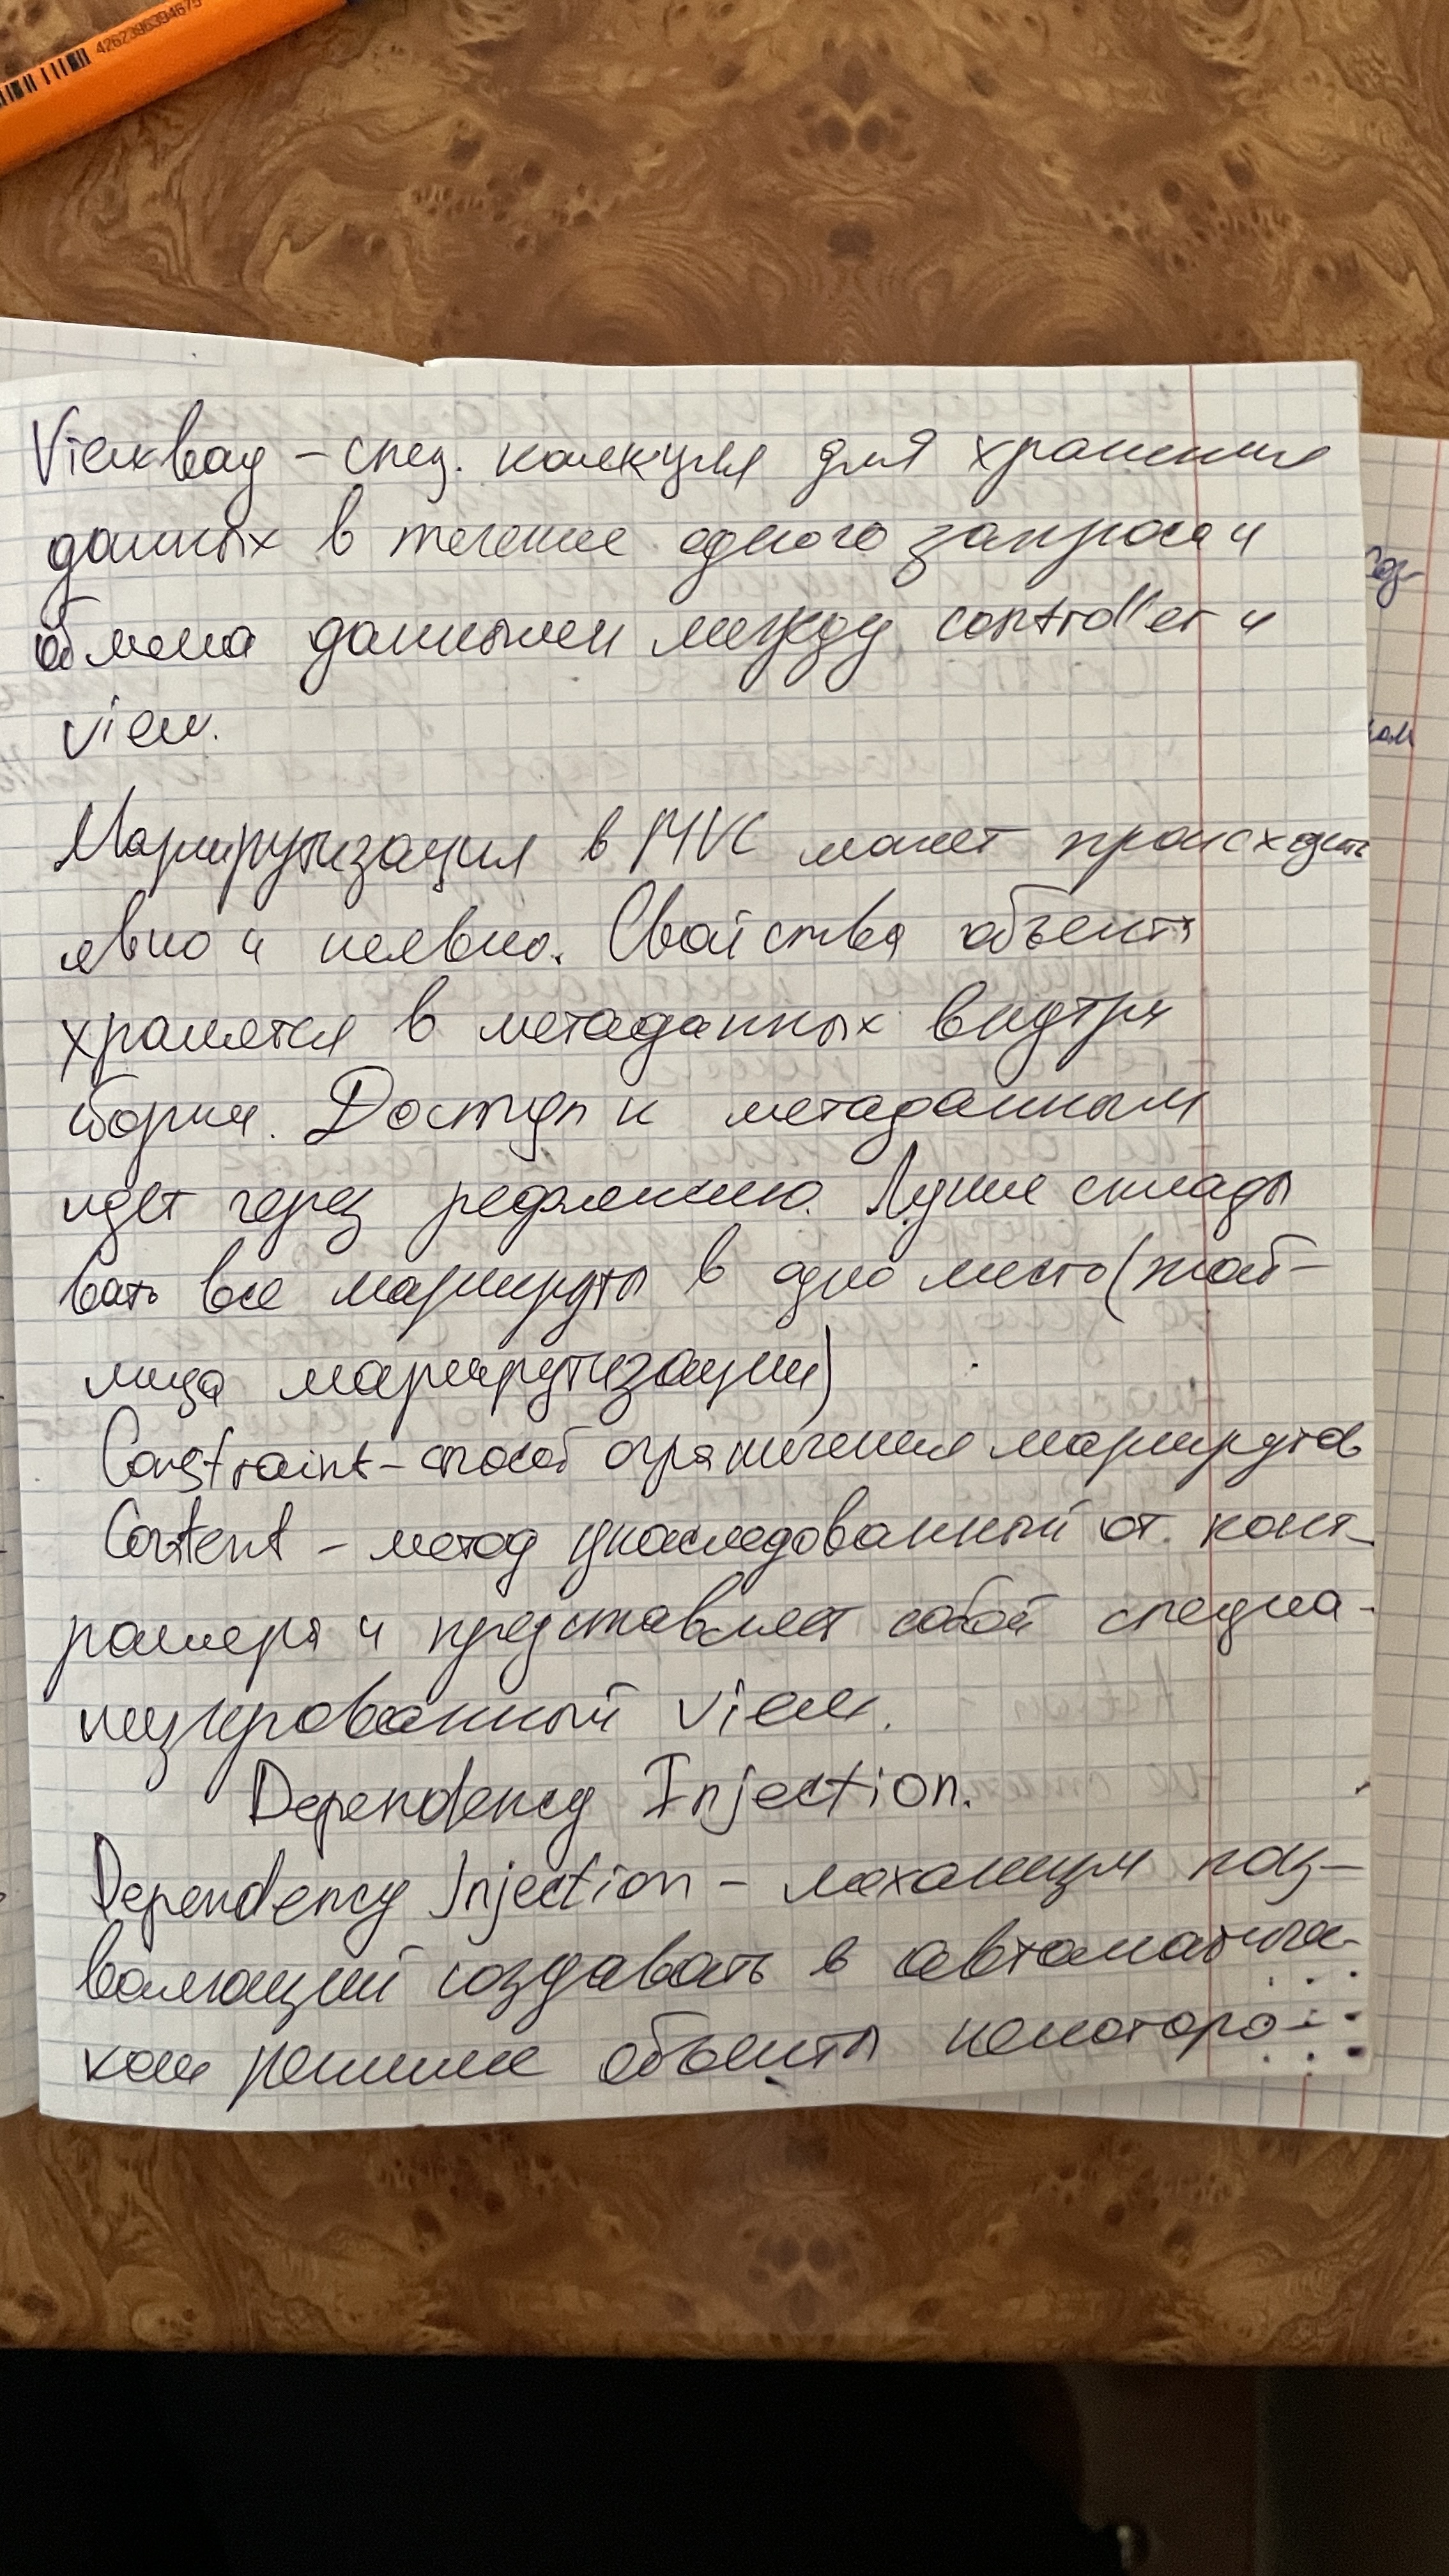 4262396394675
Viewbag – спец. колекция для хранения
данных в течение одного запроса и
обмена данными между controller и
view.
Маршрутизация в MVC может происходить
явно и неявно. Свойства объекта
хранятся в метаданных внутри
сборки. Доступ к метаданным
идет через рефлексию. Лучше склады
вать все маршруты в одно место (таб-
лица маршрутизации)
Constraint – способ ограничения маршрутов
Content – метод унаследованный от конт-
роллера и представляет собой специа-
лизированный view.
Dependency Injection.
Dependency Injection – механизм поз-
воляющий создавать в автоматичес-
ком режиме объекты некоторо-